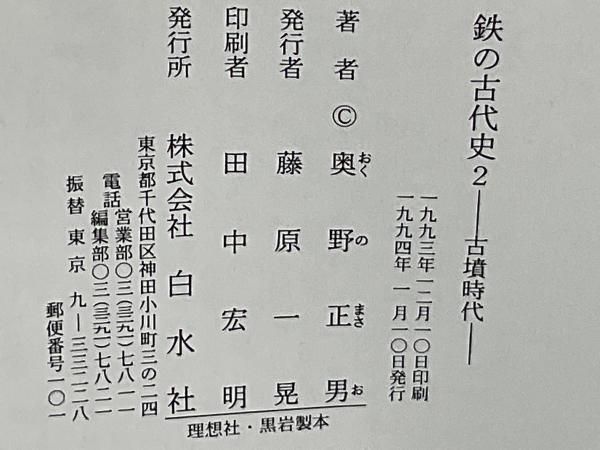 鉄の古代史2——古墳時代——
一九九三年一二月一〇日印刷
一九九四年 一月一〇日発行
著者©奥野正男
おくのまさお
発行者 藤原一晃
印刷者 田中宏明
発行所 株式会社白水社
東京都千代田区神田小川町三の二四
電話 営業部〇三(三二九一)七八一一
編集部〇三(三二九一)七八二一
振替東京九―三三二二八
郵便番号一〇一
理想社・黒岩製本